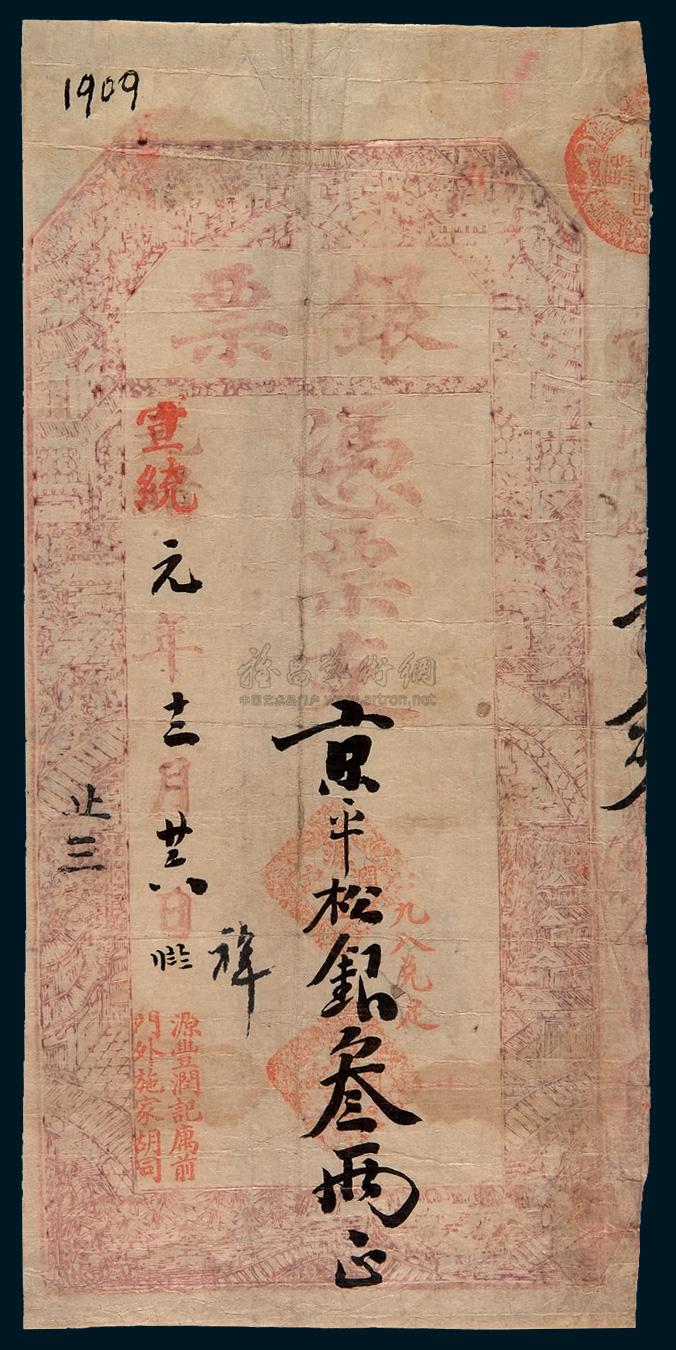 1909
銀票
憑票
京平松銀叁兩正
九八兌足
宣統元年十二月廿六日
源豐潤記寓前
門外施家胡同
雅昌藝術網
中国艺术品门户 www.artron.net